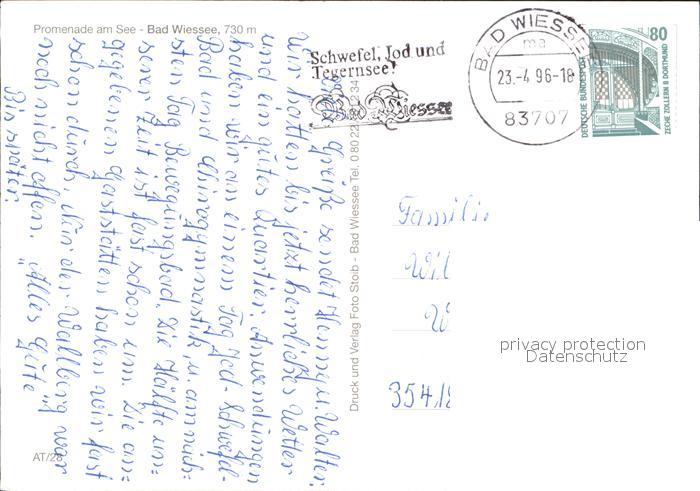 Promenade am See - Bad Wiessee, 730 m
Schwefel, Jod und
Tegernsee!
Bad Wiessee
BAD WIESSEE
ma
23.-4.96-18
83707
80
DEUTSCHE BUNDESPOST
ZECHE ZOLLERN II DORTMUND
Grüße sendet Henny u. Walter.
Wir hatten bis jetzt herrliches Wetter
und ein gutes Quartier. Anwendungen
haben wir an einem Tag Jod-Schwefel-
Bad und Wirogymnastik, u. am näch-
sten Tag Bewegungsbad. Die Hälfte un-
serer Zeit ist fast schon um. Die an-
gegebenen Gaststätten haben wir fast
schon durch. Nur der Wallberg war
noch nicht offen. "Alles Gute"
Bis später.
Druck und Verlag Foto Stoib - Bad Wiessee Tel. 0 80 22
34
Familie
Wil
W
354
privacy protection
Datenschutz
AT/28